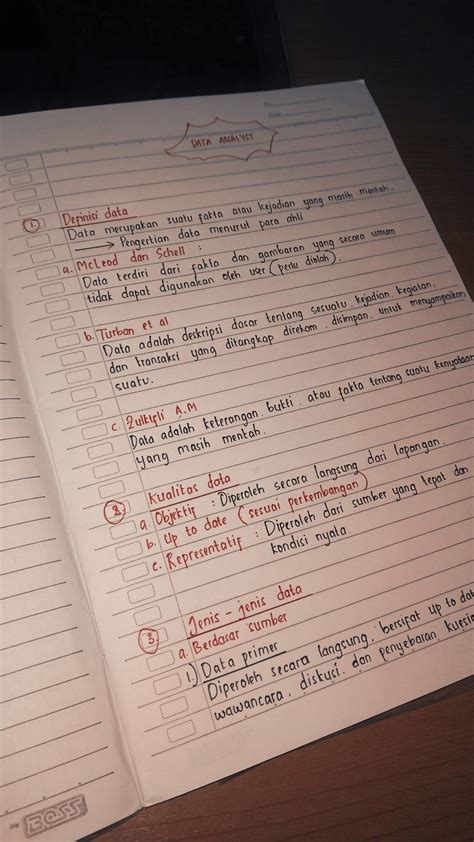 DATA ANALYST
1 Definisi data
Data merupakan suatu fakta atau kejadian yang masih mentah.
→ Pengertian data menurut para ahli
a. McLeod dan Schell :
Data terdiri dari fakta dan gambaran yang secara umum
tidak dapat digunakan oleh user (perlu diolah).
b. Turban et al
Data adalah deskripsi dasar tentang sesuatu, kejadian, kegiatan,
dan transaksi yang ditangkap, direkam, disimpan, untuk menyampaikan
suatu.
c. Zulkifli A.M
Data adalah keterangan, bukti, atau fakta tentang suatu kenyataan
yang masih mentah.
2 Kualitas data
a. Objektif : Diperoleh secara langsung dari lapangan.
b. Up to date (sesuai perkembangan)
c. Representatif : Diperoleh dari sumber yang tepat dan
kondisi nyata.
3 Jenis - jenis data
a. Berdasar sumber
1.) Data primer
Diperoleh secara langsung, bersifat up to dat
wawancara, diskusi, dan penyebaran kuesio
BOSS